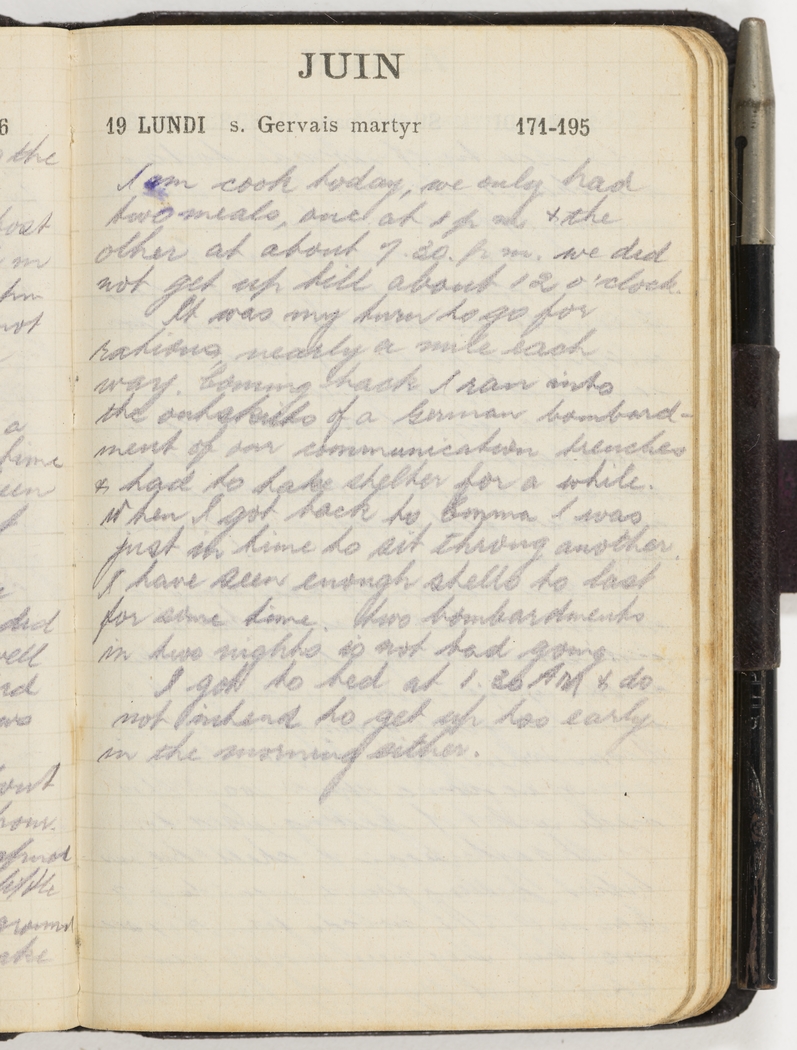 6
the
JUIN
19 LUNDI s. Gervais martyr 171-195
I am cook today, we only had
two meals, one at 1 p m. & the
other at about 7.20. p.m. we did
not get up till about 12 o'clock.
It was my turn to go for
rations, nearly a mile each
way. Coming back I ran into
the outskirts of a German bombard-
ment of our communication trenches
& had to take shelter for a while.
When I got back to Emma I was
just in time to sit throug another.
I have seen enough shells to last
for some time. two bombardments
in two nights is not bad going
I got to bed at 1.20 AM & do
not intend to get up too early
in the morning either.
not
a
time
een
did
vell
out
hour.
little
ake